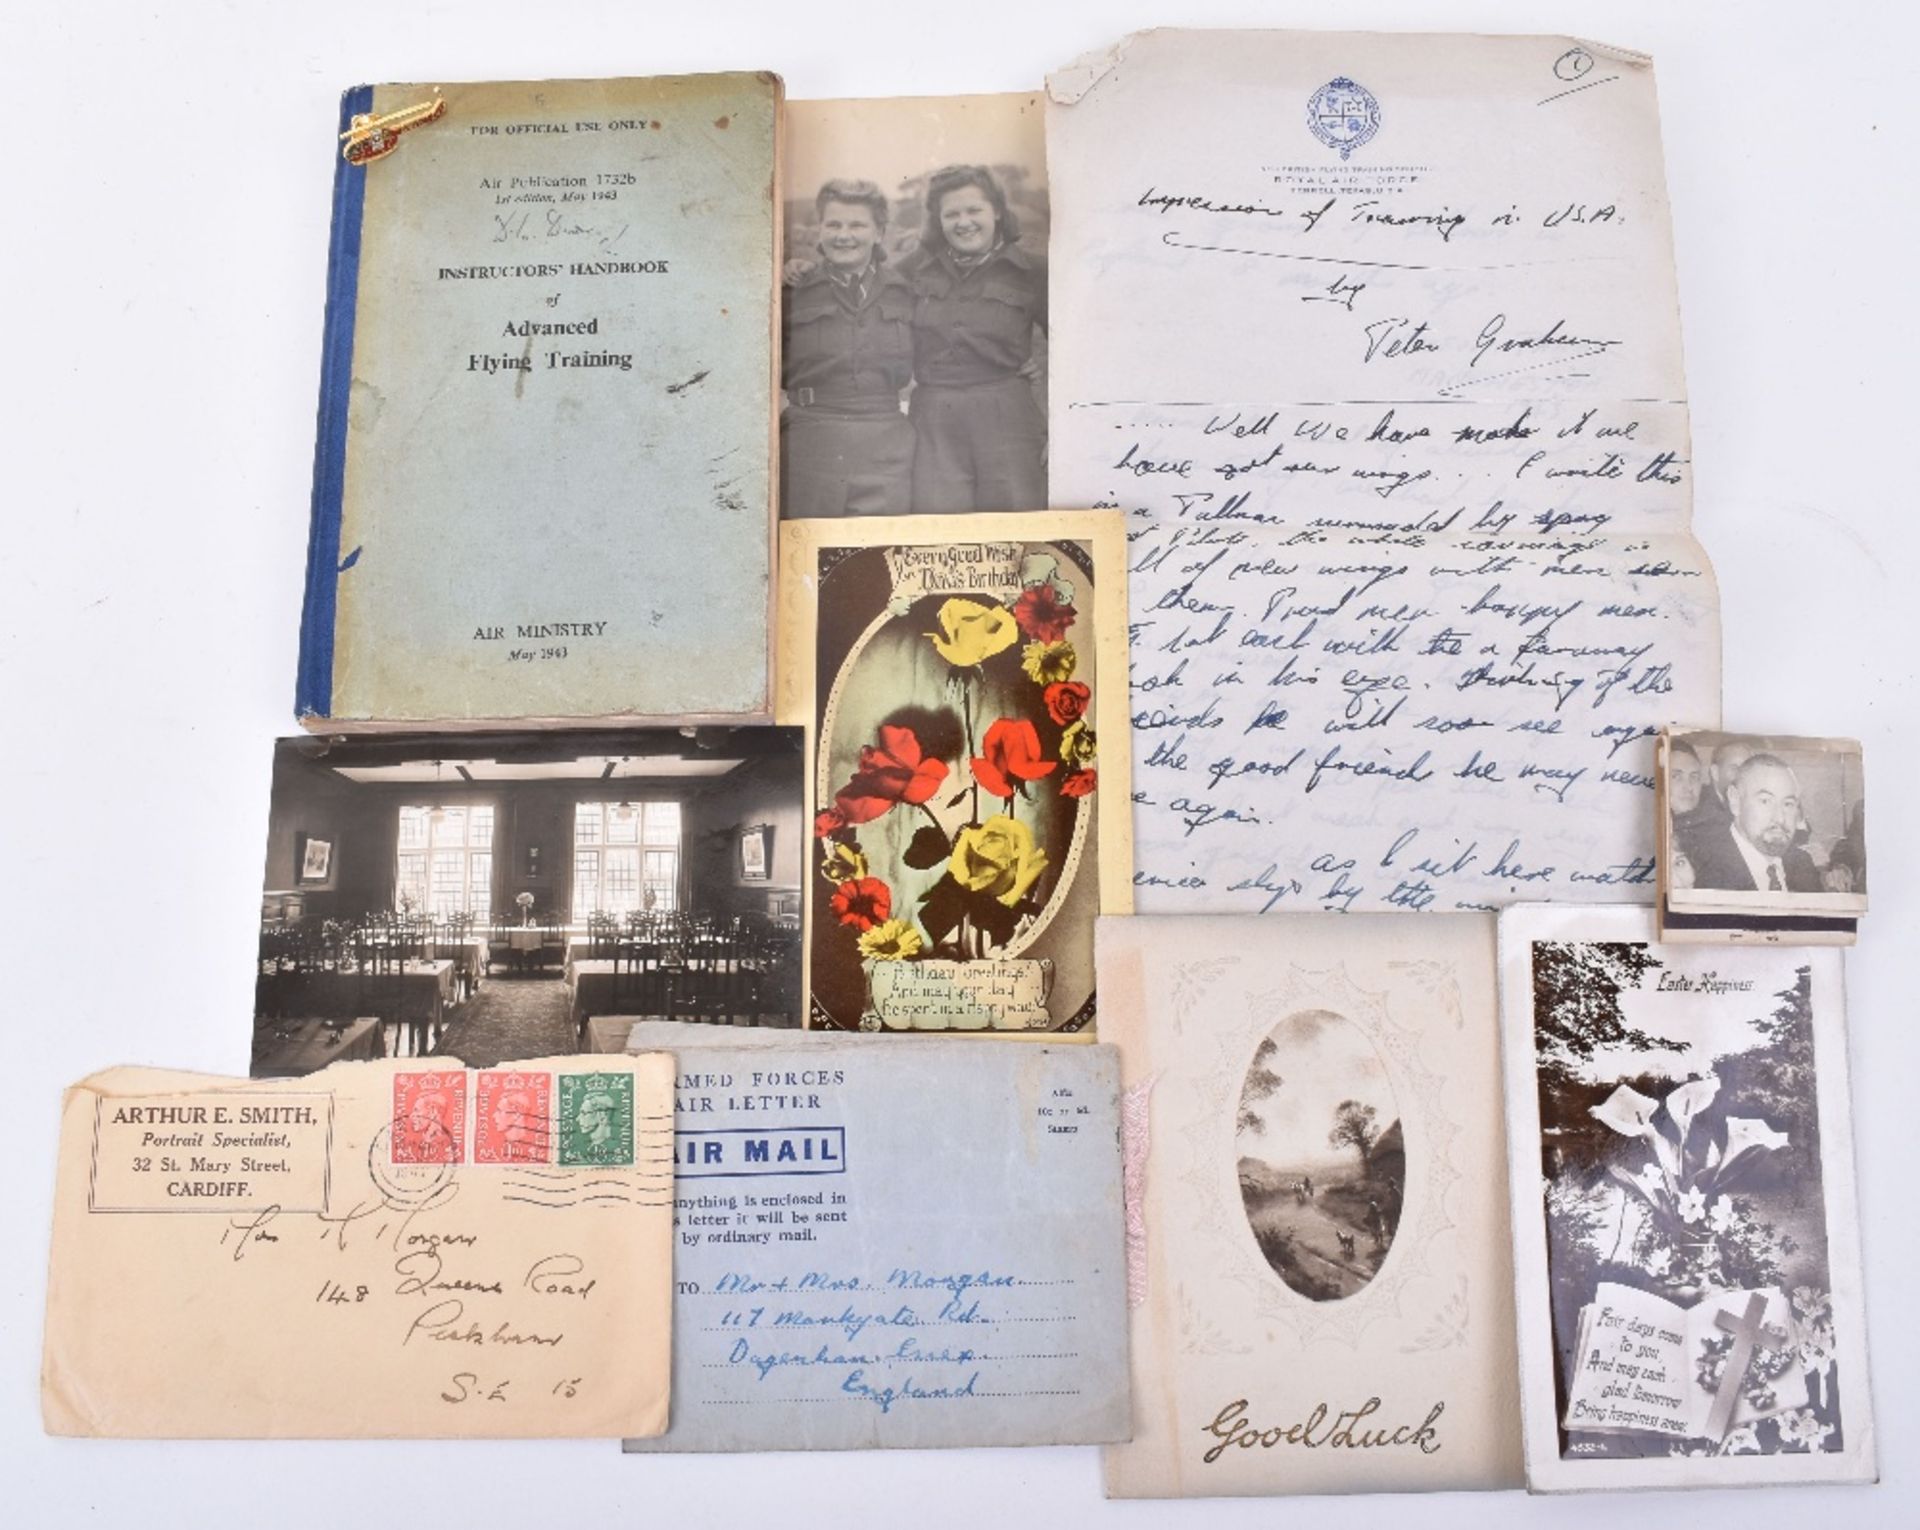 FOR OFFICIAL USE ONLY
Air Publication 1732b
1st edition, May 1943
INSTRUCTORS' HANDBOOK
of
Advanced
Flying Training
AIR MINISTRY
May 1943
1
ROYAL AIR FORCE
TERRELL, TEXAS, U.S.A.
Impression of Training in U.S.A.
by
Peter Graham
..... Well We have make it we
have got our wings... I write this
in a Pullman surrounded by
of new wings with men
them. Proud men happy men.
sat each with the a faraway
in his eye. Thinking of the
he will soon see
the good friend he may
again.
as I sit here watch
by the
Every Good Wish
Birthday
Birthday Greetings!
And may your day
Be spent in a happy way!
Easter Happiness.
Fair days come
to you,
And may each
glad tomorrow
Bring happiness anew.
Good Luck
ARTHUR E. SMITH,
Portrait Specialist,
32 St. Mary Street,
CARDIFF.
POSTAGE REVENUE
POSTAGE REVENUE
POSTAGE REVENUE
Mrs M Morgan
148 Queens Road
Peckham
S.E 15
RMED FORCES
AIR LETTER
AIR MAIL
anything is enclosed in
letter it will be sent
by ordinary mail.
Affix
Stamp
TO Mr + Mrs. Morgan
117 Rd.
Dagenham. Essex.
England